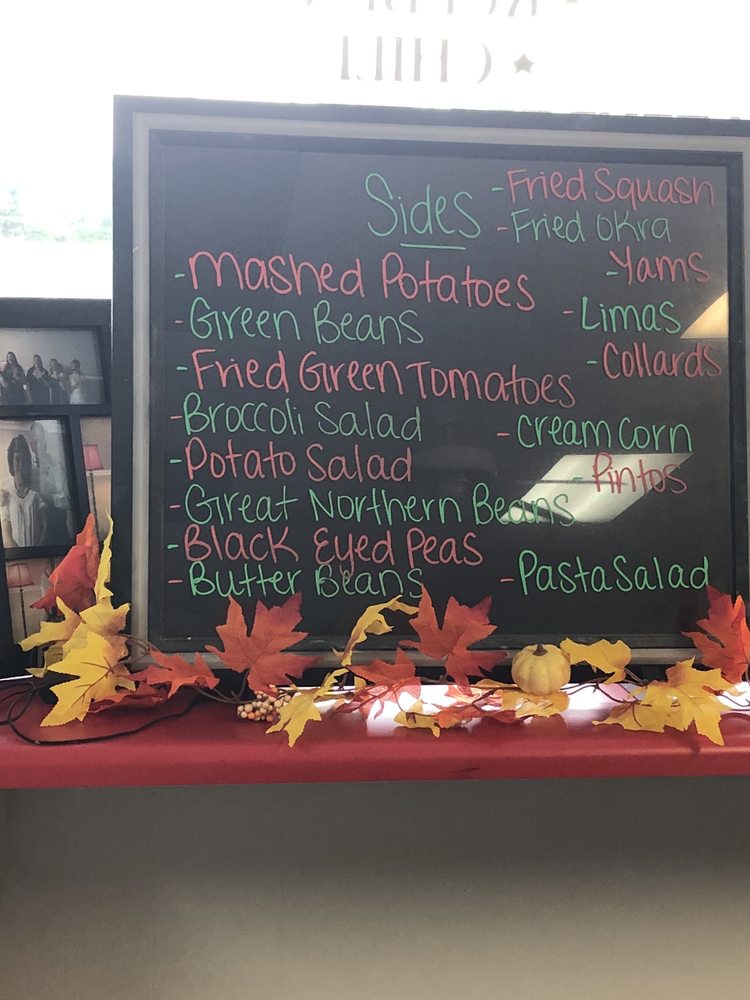 Sides
- Mashed Potatoes
- Green Beans
- Fried Green Tomatoes
- Broccoli Salad
- Potato Salad
- Great Northern Beans
- Black Eyed Peas
- Butter Beans
- Fried Squash
- Fried Okra
- Yams
- Limas
- Collards
- Cream Corn
- Pintos
- Pasta Salad